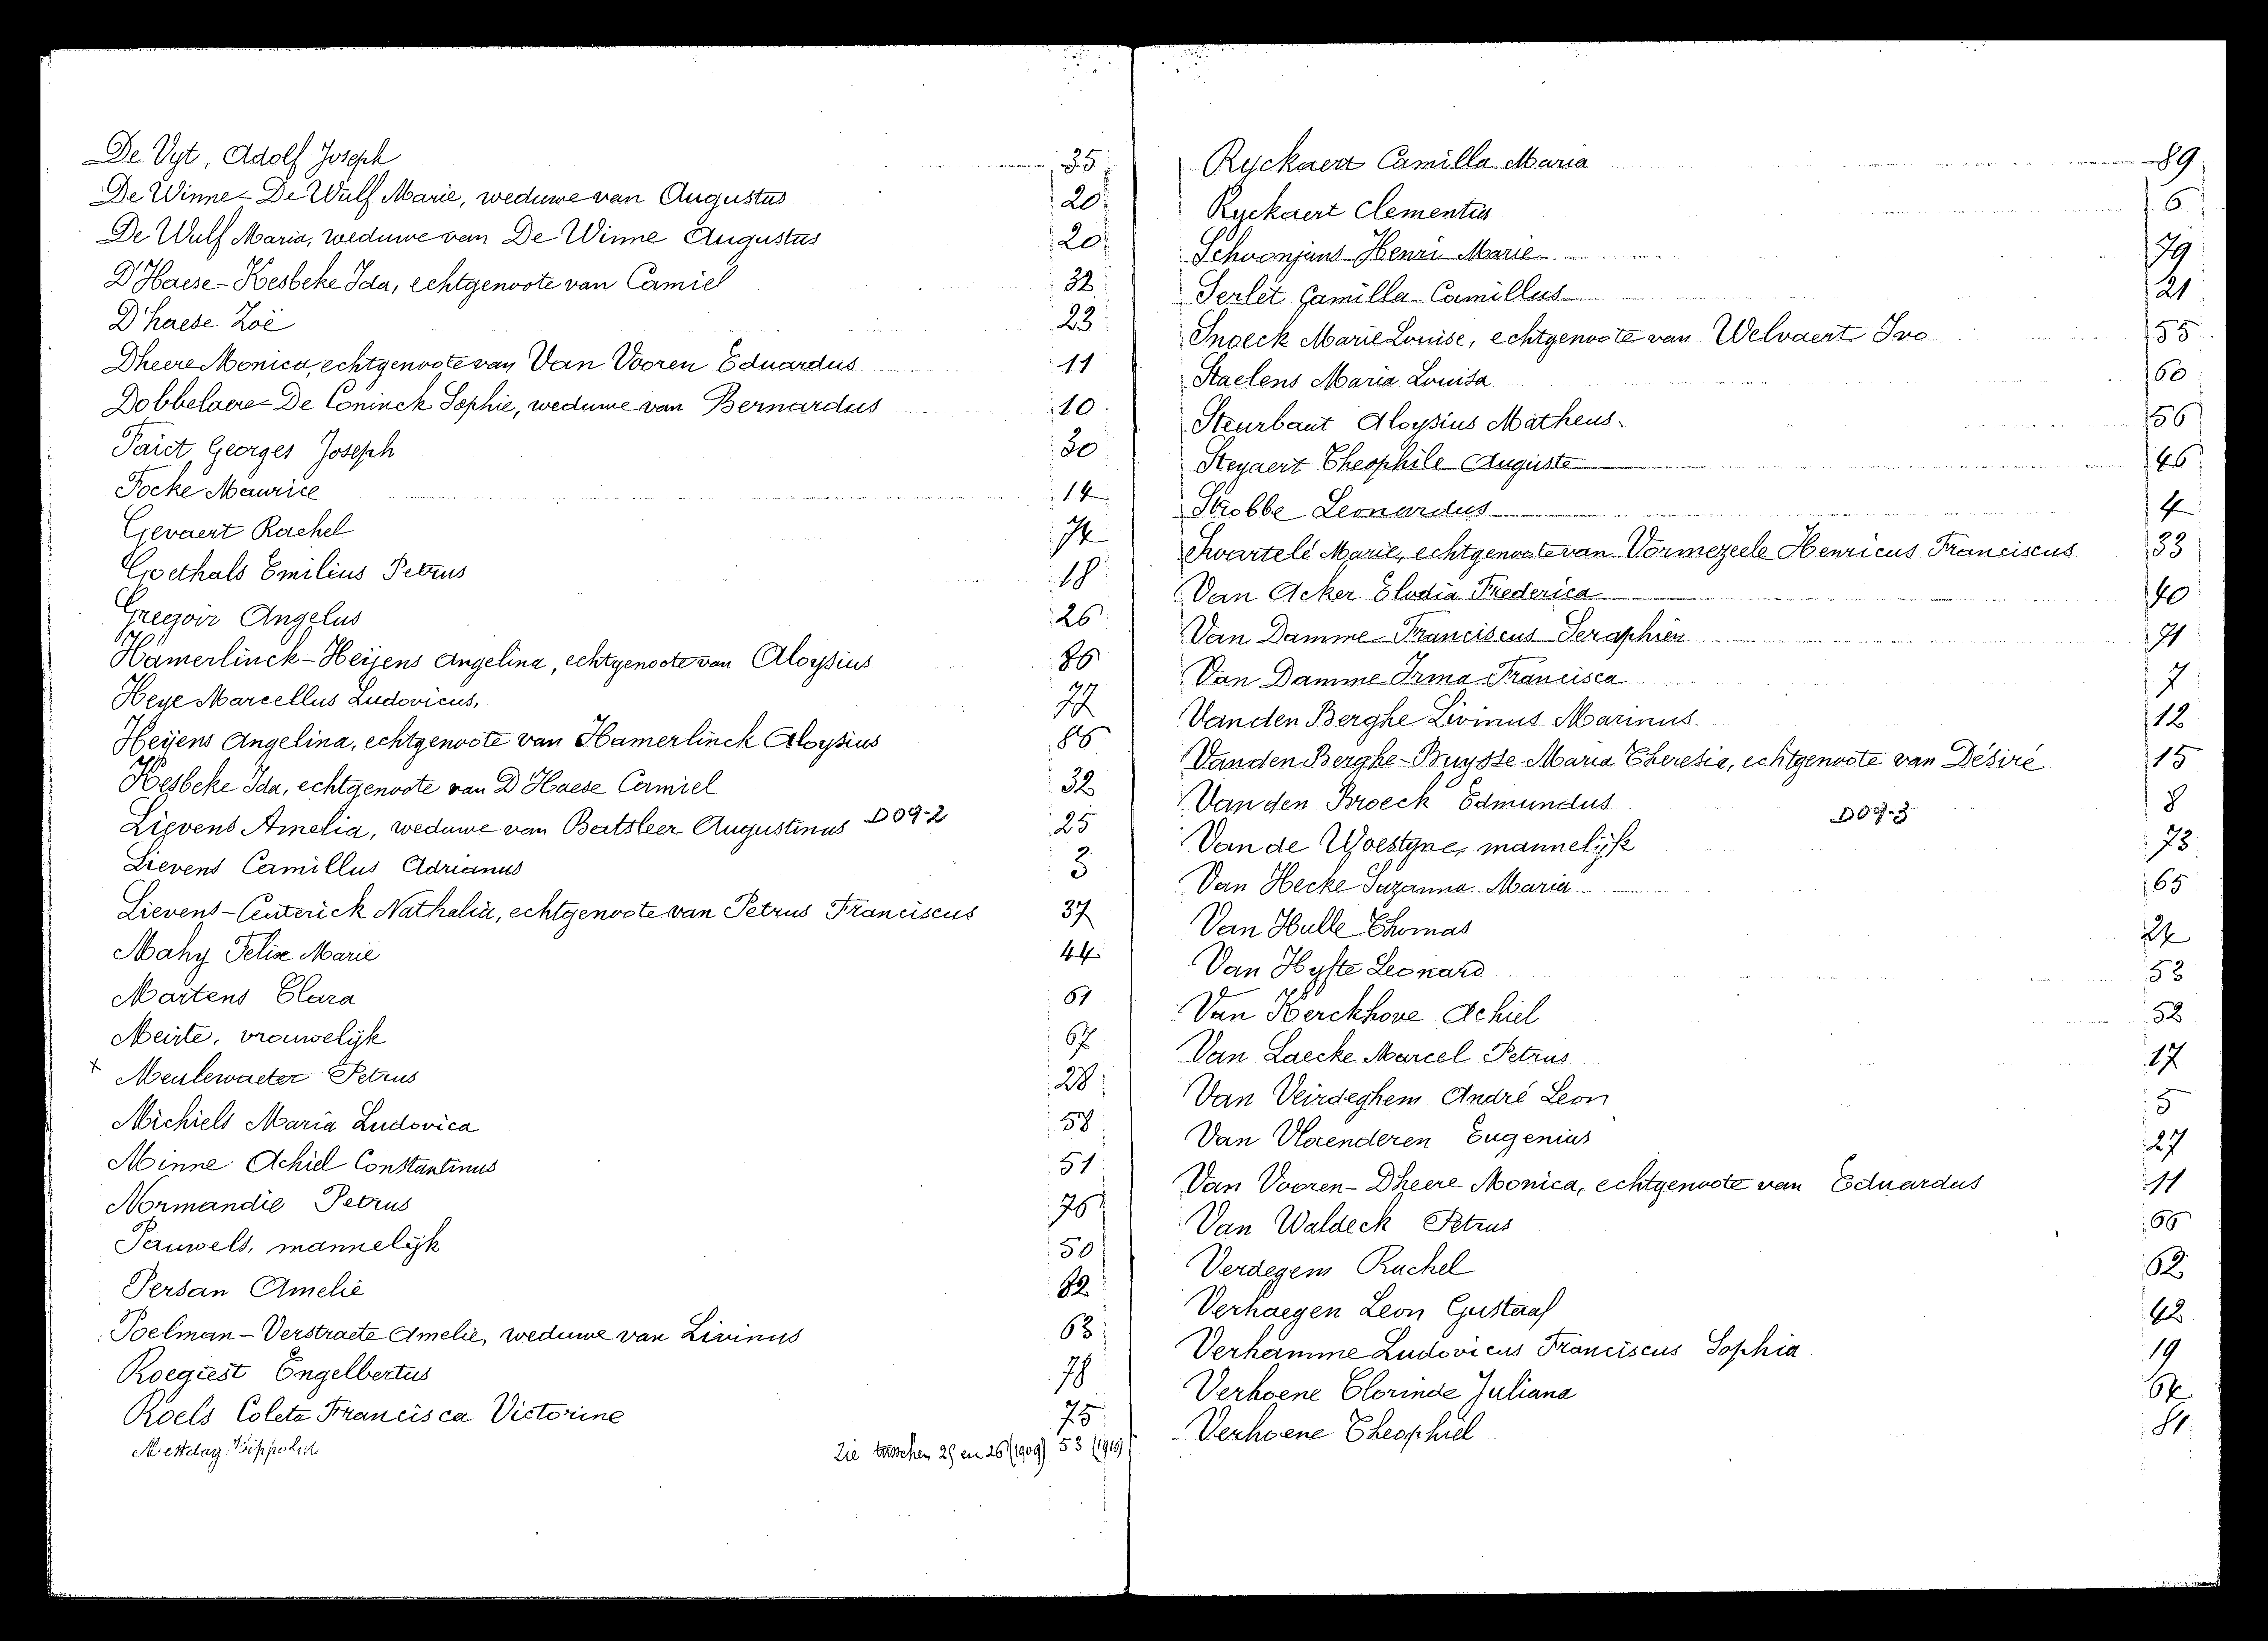 De Vyt, Adolf Joseph 35
De Winne - De Wulf Marie, weduwe van Augustus 20
De Wulf Maria, weduwe van De Winne Augustus 20
D'Haese - Kesbeke Ida, echtgenoote van Camiel 32
D'haese Zoë 23
Dheere Monica, echtgenoote van Van Vooren Eduardus 11
Dobbelaere - De Coninck Sophie, weduwe van Bernardus 10
Faict Georges Joseph 30
Focke Maurice 14
Gevaert Rachel 74
Goethals Emilius Petrus 18
Gregoir Angelus 26
Hamerlinck - Heijens Angelina, echtgenoote van Aloysius 86
Heye Marcellus Ludovicus, 77
Heijens Angelina, echtgenoote van Hamerlinck Aloysius 86
Kesbeke Ida, echtgenoote van D'Haese Camiel 32
Lievens Amelia, weduwe van Batsleer Augustinus D09-2 25
Lievens Camillus Adrianus 3
Lievens - Ceuterick Nathalia, echtgenoote van Petrus Franciscus 37
Mahy Felix Marie 44
Martens Clara 61
Meirte, vrouwelijk 67
x Meulewaeter Petrus 28
Michiels Maria Ludovica 58
Minne Achiel Constantinus 51
Normandie Petrus 76
Pauwels, mannelijk 50
Persan Amelie 82
Poelman - Verstraete Amelie, weduwe van Livinus 63
Roegiest Engelbertus 78
Roels Coleta Francisca Victorine 75
Mestdag Hippoliet Zie tusschen 25 en 26 (1909) 53 (1919)
Ryckaert Camilla Maria 89
Ryckaert Clementia 6
Schoonjans Henri Marie 79
Serlet Camilla Camillus 21
Snoeck Marie Louise, echtgenoote van Welvaert Ivo 55
Staelens Maria Louisa 60
Steurbaut Aloysius Matheus 56
Steyaert Theophile Auguste 46
Strobbe Leonardus 4
Swartelé Marie, echtgenoote van Vormezeele Henricus Franciscus 33
Van Acker Elodia Frederica 40
Van Damme Franciscus Seraphien 71
Van Damme Irma Francisca 7
Vanden Berghe Livinus Marinus 12
Vanden Berghe - Buysse Maria Theresia, echtgenoote van Désiré 15
Van den Broeck Edmundus 8
D09-3
Van de Woestyne, mannelijk 73
Van Hecke Suzanna Maria 65
Van Hulle Thomas 24
Van Hyfte Leonard 53
Van Kerckhove Achiel 52
Van Laecke Marcel Petrus 17
Van Veirdeghem André Leon 5
Van Vlaenderen Eugenius 27
Van Vooren - Dheere Monica, echtgenoote van Eduardus 11
Van Waldeck Petrus 66
Verdegem Rachel 62
Verhaegen Leon Gustaaf 42
Verhamme Ludovicus Franciscus Sophia 19
Verhoene Clorinde Juliana 64
Verhoene Theophiel 81